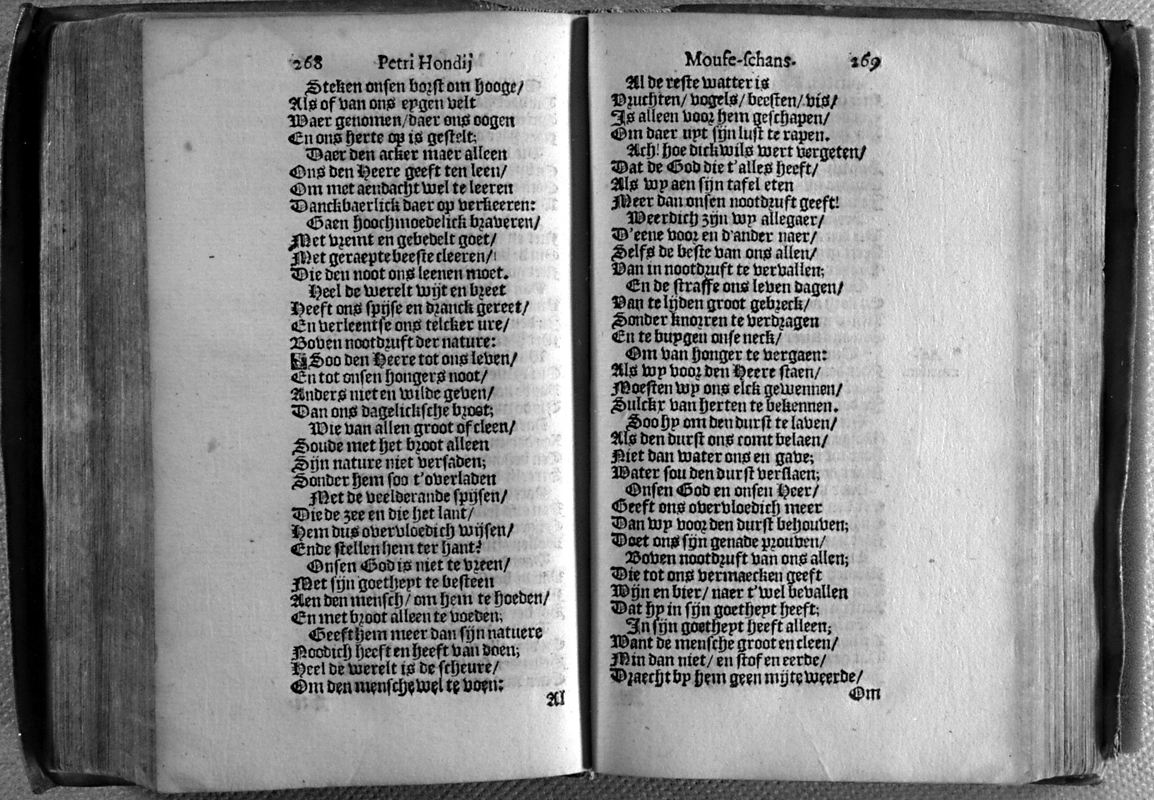 268 Petri Hondij
Steken onsen borst om hooge/
Als of van ons eygen velt
Waer genomen/daer ons oogen
En ons herte op is gestelt;
Daer den acker maer alleen
Ons den Heere geeft ten leen/
Om met aendacht wel te leeren
Danckbaerlick daer op verkeeren:
Gaen hoochmoedelick braveren/
Met vremt en gebedelt goet/
Met geraepte beeste cleeren/
Die den noot ons leenen moet.
Heel de werelt wijt en breet
Heeft ons spijse en dranck gereet/
En verleentse ons telcker ure/
Boven nootdruft der nature:
Soo den Heere tot ons leven/
En tot onsen hongers noot/
Anders niet en wilde geven/
Dan ons dagelicksche broot;
Wie van allen groot of cleen/
Soude met het broot alleen
Sijn nature niet versaden;
Sonder hem soo t'overladen
Met de veelderande spijsen/
Die de zee en die het lant/
Hem dus overvloedich wijsen/
Ende stellen hem ter hant?
Onsen God is niet te vreen/
Met sijn goetheyt te besteen
Aen den mensch/ om hem te hoeden/
En met broot alleen te voeden;
Geeft hem meer dan sijn natuere
Noodich heeft en heeft van doen;
Heel de werelt is de scheure/
Om den mensche wel te voen:
Al
Moufe-schans. 269
Al de reste watter is
Vruchten/ vogels/ beesten/ vis/
Is alleen voor hem geschapen/
Om daer uyt sijn lust te rapen.
Ach! hoe dickwils wert vergeten/
Dat de God die t'alles heeft/
Als wy aen sijn tafel eten
Meer dan onsen nootdruft geeft!
Weerdich zijn wy allegaer/
D'eene voor en d'ander naer/
Selfs de beste van ons allen/
Van in nootdruft te vervallen;
En de straffe ons leven dagen/
Van te lijden groot gebreck/
Sonder knorren te verdragen
En te buygen onse neck/
Om van honger te vergaen:
Als wy voor den Heere staen/
Moesten wy ons elck gewennen/
Sulckx van herten te bekennen.
Soo hy om den durst te laven/
Als den durst ons comt belaen/
Niet dan water ons en gave;
Water sou den durst verslaen;
Onsen God en onsen Heer/
Geeft ons overvloedich meer
Dan wy voor den durst behouven;
Doet ons sijn genade prouven/
Boven nootdruft van ons allen;
Die tot ons vermaecken geeft
Wijn en bier/ naer t'wel bevallen
Dat hy in sijn goetheyt heeft;
In sijn goetheyt heeft alleen;
Want de mensche groot en cleen/
Min dan niet/ en stof en eerde/
Draecht by hem geen mijte weerde/
Om